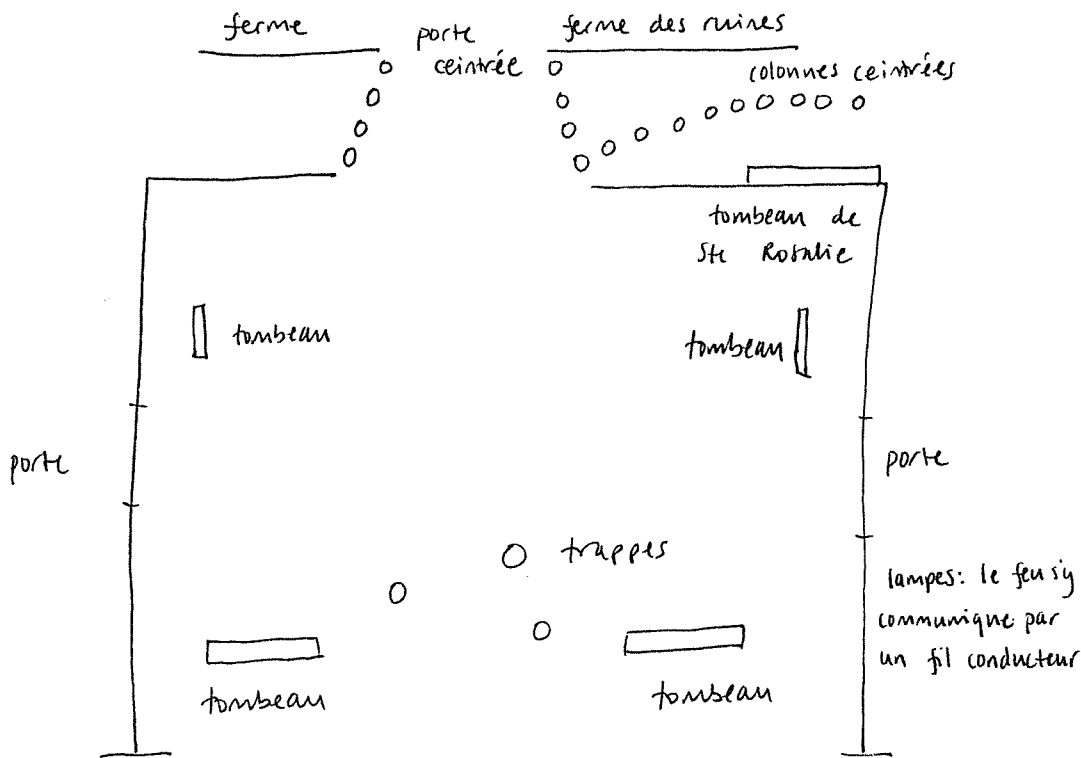 ferme
porte
ceintrée
ferme des ruines
colonnes ceintrées
tombeau de
Ste Rosalie
tombeau
tombeau
porte
porte
trappes
lampes: le feu s'y
communique par
un fil conducteur
tombeau
tombeau